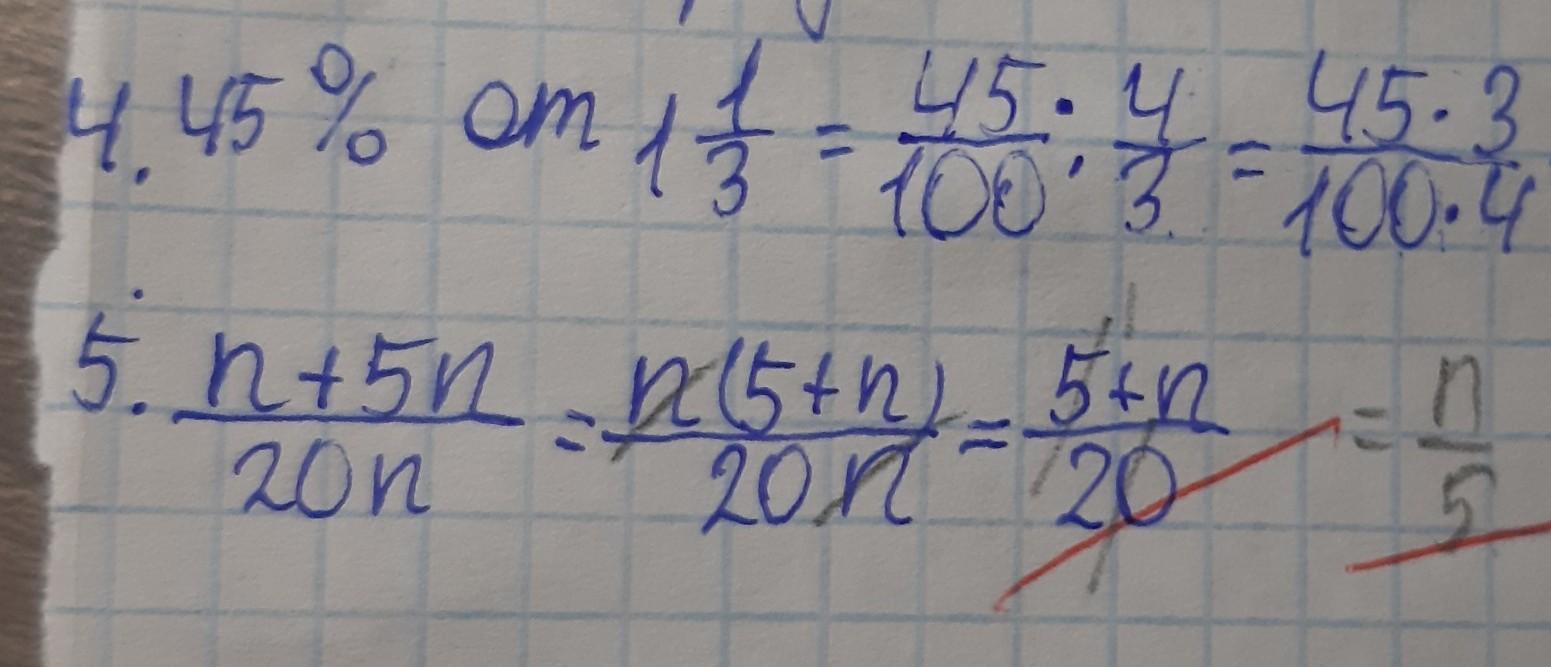 4. 45% от 1 1/3 = 45/100 : 4/3 = 45·3/100·4
5. n+5n/20n = n(5+n)/20n = 5+n/20 = n/5